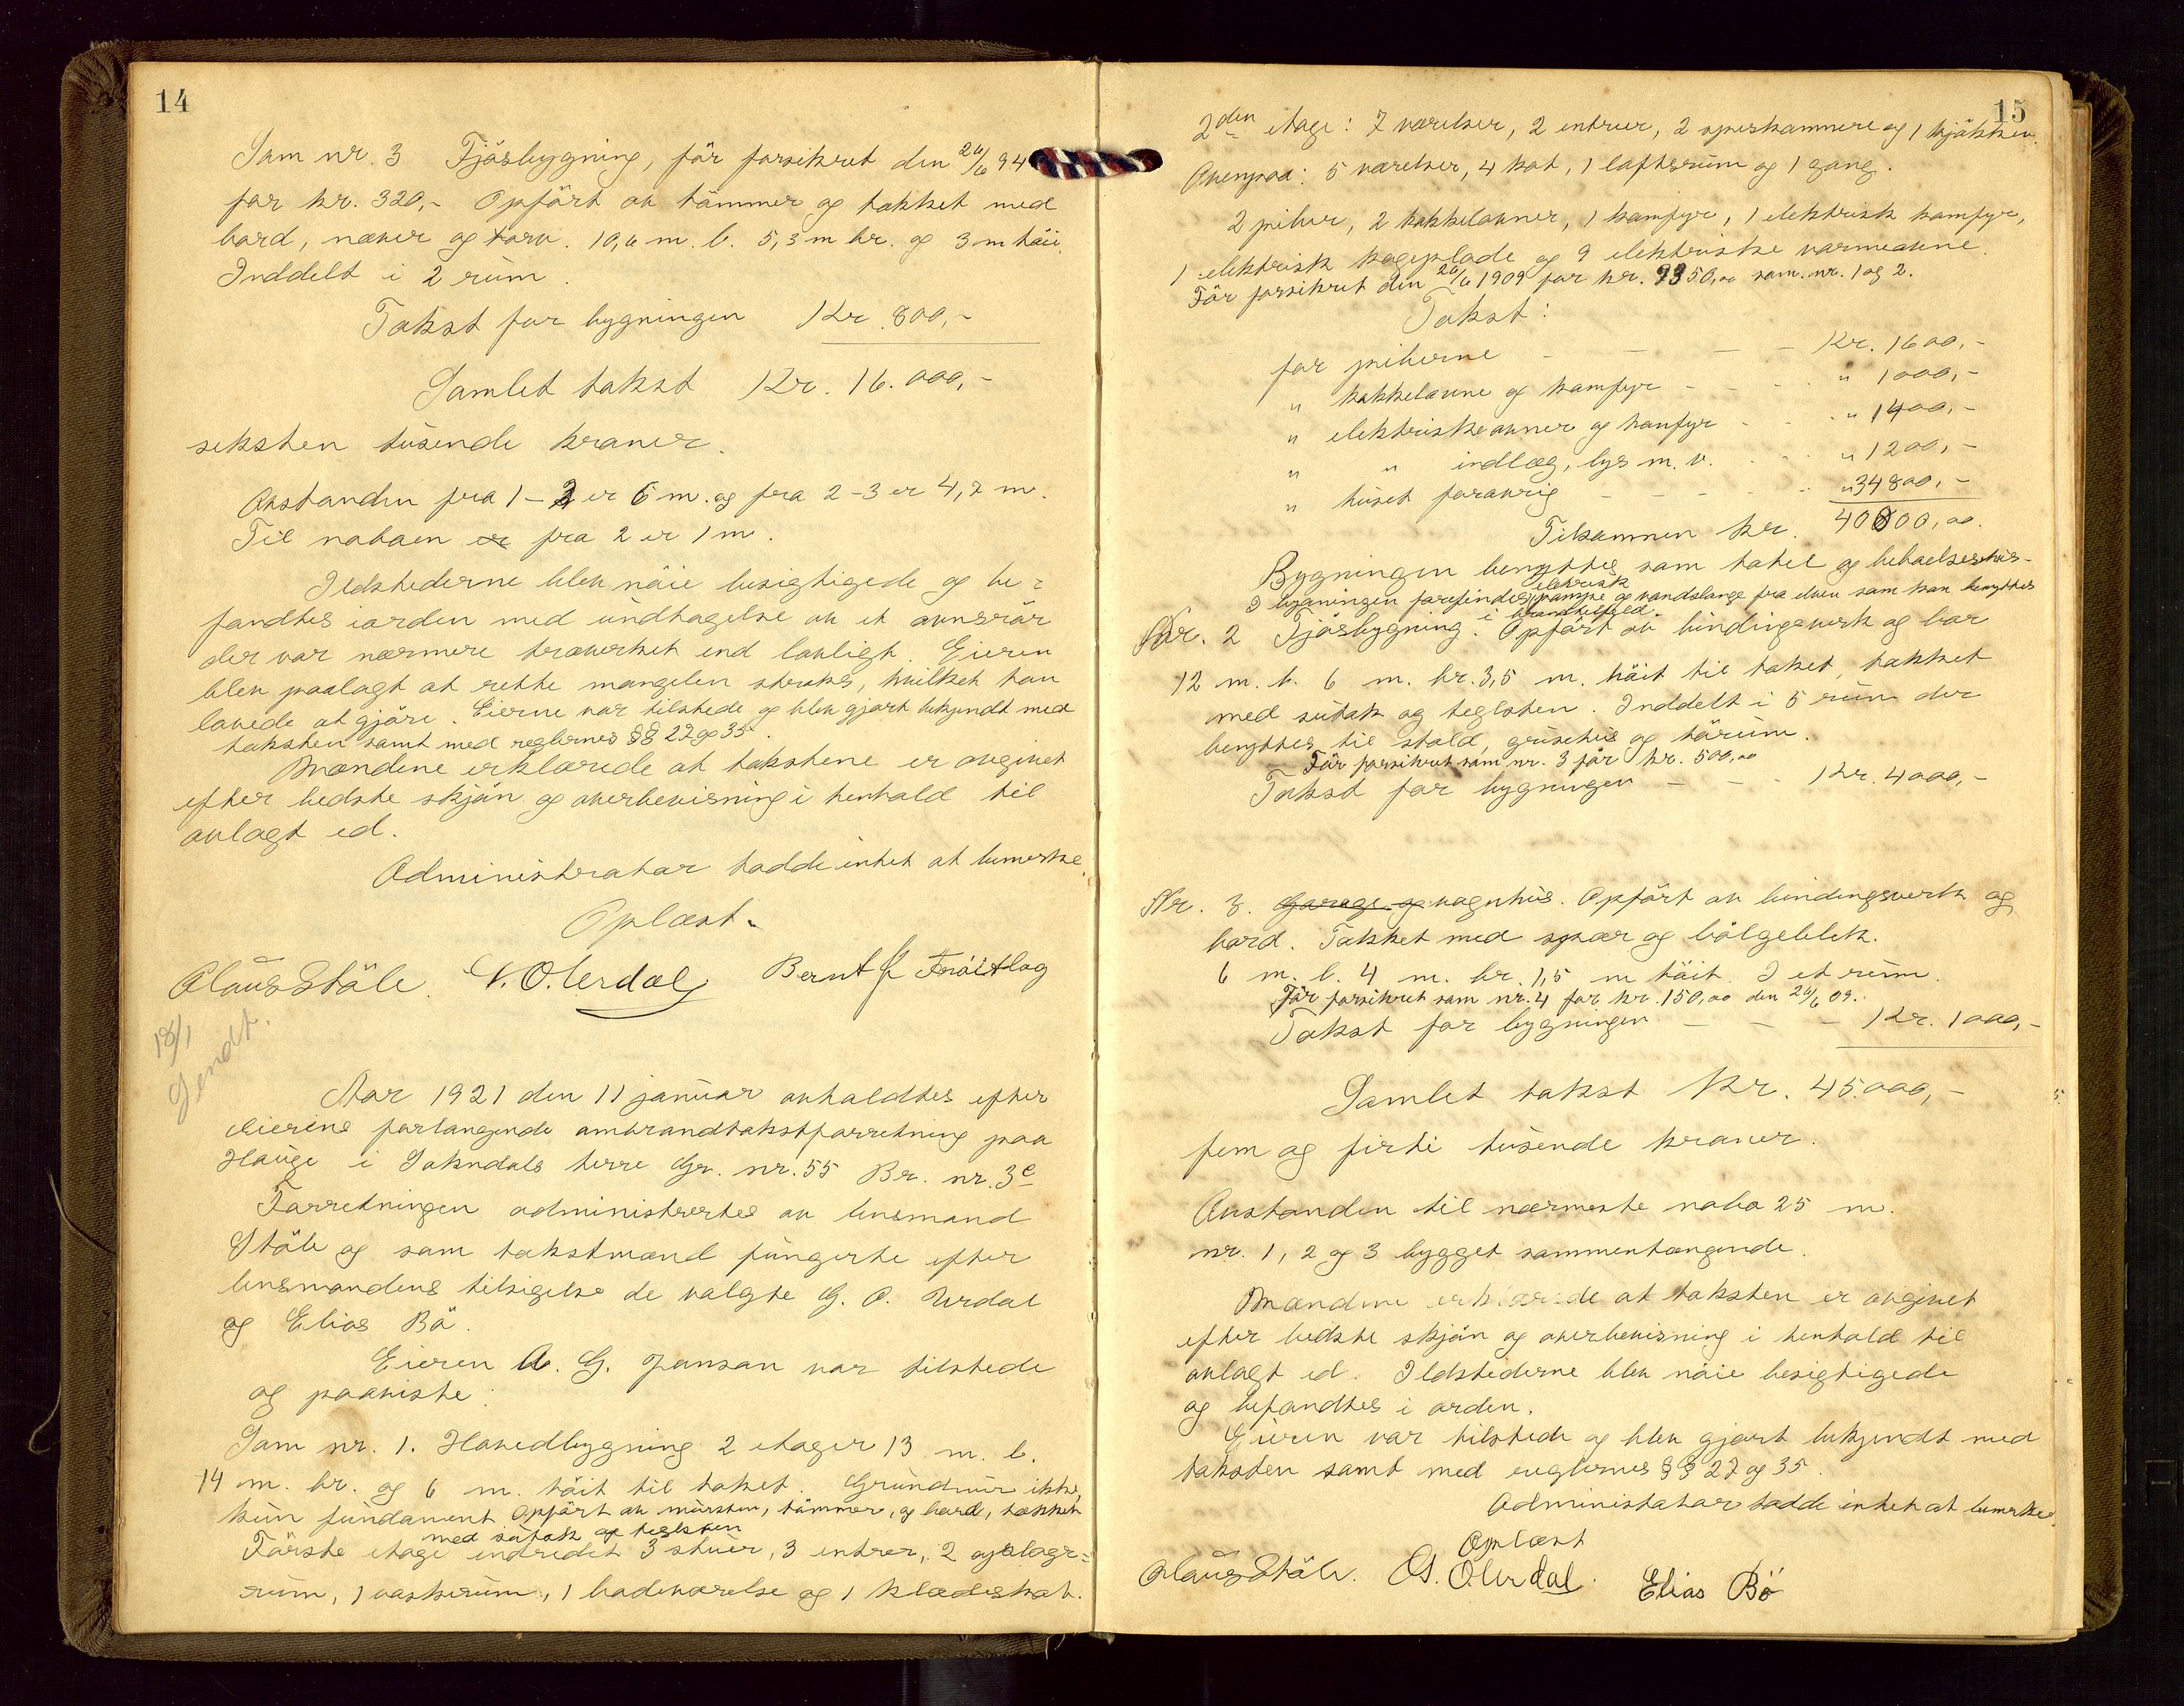 14
Som nr. 3 Fjösbygning, för forsikret den 26/6 94
for kr. 320,- Opfört av tömmer og tækket med
bord, næver og torv. 10,6 m. l. 5,3 m br. og 3 m höi.
Inddelt i 2 rüm.
Takst for bygningen Kr. 800,-
Samlet takst Kr. 16.000,-
seksten tusende kroner.
Avstanden fra 1-2 er 6 m. og fra 2-3 er 4,7 m.
Til naboen er fra 2 er 1 m.
Ildstederne blev nöie besigtigede og be-
fandtes iorden med undtagelse av et ovnsrör
der var nærmere træverket end lovligt. Eieren
blev paalagt at rette mangelen straks, hvilket han
lovede at gjöre. Eierne var tilstede og blev gjort bekjendt med
taksten samt med reglernes §§ 27 og 35.
Mændene erklærede at takstene er avgivet
efter bedste skjön og overbevisning i henhold til
avlagt ed.
Administrator hadde intet at bemerke.
Oplæst.
Olaus Stöle. G. O. Urdal Bernt J Fröitlog
18/1
Sendt.
Aar 1921 den 11 januar avholdtes efter
eierens forlangende ombrandtakstforretning paa
Hauge i Sokndals herre Gr. nr. 55 Br. nr. 3e
Forretningen administrertes av lensmand
Stöle og som takstmænd fungerte efter
lensmandens tilsigelse de valgte G. O. Urdal
og Elias Bö.
Eieren A. G. Jonson var tilstede
og paaviste:
Som nr. 1. Hovedbygning 2 etager 13 m. l.
14 m. br. og 6 m. höit til taket. Grundmur ikke,
kun fundament. Opfört av mursten, tömmer, og bord, tækket
med sutak og teglsten
Förste etage indredet 3 stuer, 3 entrer, 2 oplags-
rum, 1 vaskerum, 1 badeværelse og 1 klædeskot.
15
2den etage: 7 værelser, 2 entreer, 2 spiskammere og 1 kjökken.
Ovenpaa: 5 værelser, 4 kot, 1 loftsrum og 1 gang.
2 piber, 2 kakkelovner, 1 komfyr, 1 elektrisk komfyr,
1 elektrisk kogeplade og 9 elektriske varmeovne.
För forsikret den 26/6 1909 for kr. 9350,00 som nr. 1 og 2.
Takst:
for piberne - - - - Kr. 1600,-
" kakkelovne og komfyr - - - " 1000,-
" elektriske ovner og komfyr - - " 1400,-
" " indlæg, lys m. v. - - " 1200,-
" huset forövrig - - - - " 34800,-
Tilsammen kr. 40000,00.
Bygningen benyttes som hotel og beboelseshus-
I bygningen forefindes elektrisk pumpe og vandslange fra elven som kan benyttes
i brandtilfeld.
Nr. 2 Fjösbygning. Opfört av bindingsverk og bor
12 m. l. 6 m. br. 3,5 m. höit til taket, tækket
med sutak og teglsten. Inddelt i 5 rum der
benyttes til stald, grisehus og hörum.
För forsikret som nr. 3 för kr. 500,00
Takst for bygningen - - - Kr. 4000,-
Nr. 3. Garage og vognhus. Opfört av bindingsverk og
bord. Tækket med spær og bölgeblek.
6 m. l. 4 m. br. 1,5 m höit. I et rum.
För forsikret som nr. 4 for kr. 150,00 den 26/6 09.
Takst for bygningen - - - Kr. 1000,-
Samlet takst Kr. 45.000,-
fem og firti tusende kroner.
Avstanden til nærmeste nabo 25 m.
nr. 1, 2 og 3 bygget sammenhængende.
Mændene erklærede at taksten er avgivet
efter bedste skjön og overbevisning i henhold til
avlagt ed. Ildstederne blev nöie besigtigede
og befandtes i orden.
Eieren var tilstede og blev gjort bekjendt med
taksten samt med reglernes §§ 27 og 35.
Administator hadde intet at bemerke.
Oplæst
Olaus Stöle. G. O. Urdal. Elias Bö